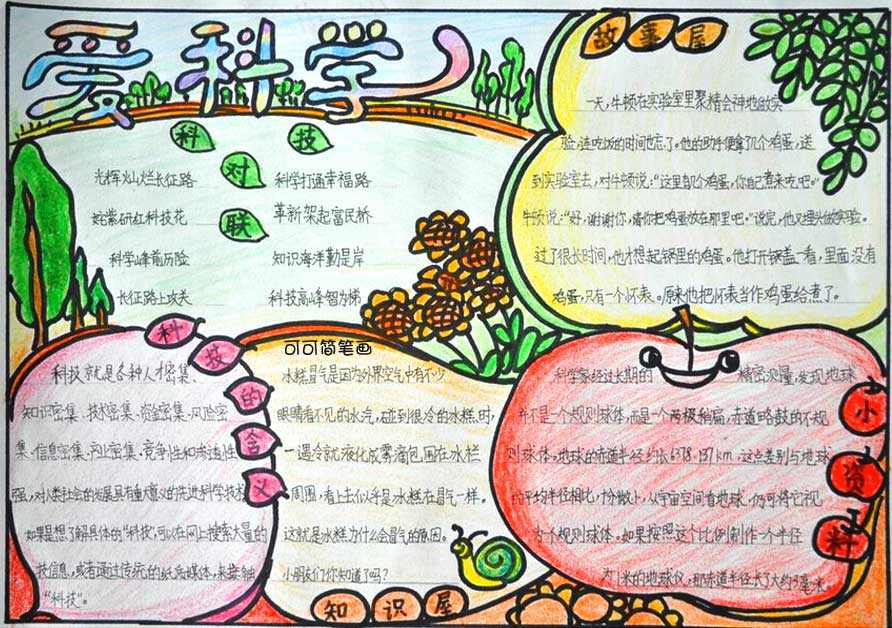 爱科学
科技
对
联
光辉灿烂长征路 科学打通幸福路
姹紫嫣红科技花 革新架起富民桥
科学峰前历险 知识海洋勤是岸
长征路上攻关 科技高峰智为梯
故事屋
一天,牛顿在实验室里聚精会神地做实
验,连吃饭的时间也忘了。他的助手便拿了几个鸡蛋,送
到实验室去,对牛顿说:“这里有几个鸡蛋,你自己煮来吃吧。”
牛顿说:“好,谢谢你,请你把鸡蛋放在那里吧。”说完,他又埋头做实验。
过了很长时间,他才想起锅里的鸡蛋。他打开锅盖一看,里面没有
鸡蛋,只有一个怀表。原来他把怀表当作鸡蛋给煮了。
科技的含义
科技就是各种人才密集、
知识密集、技术密集、资金密集、风险密
集、信息密集、产业密集、竞争性和渗透性
强,对人类社会的发展具有重大意义的先进科学技术
如果是想了解具体的“科技”,可以在网上搜索大量的
技信息,或者通过传统的纸质媒体,来接触
“科技”。
可可简笔画
冰糕冒气是因为外界空气中有不少
眼睛看不见的水汽,碰到很冷的冰糕时,
一遇冷就液化成雾滴包围在冰糕
周围,看上去似乎是冰糕在冒气一样。
这就是冰糕为什么会冒气的原因。
小朋友们你知道了吗?
知识屋
科学家经过长期的 精密测量,发现地球
并不是一个规则球体,而是一个两极稍扁,赤道略鼓的不规
则球体。地球的赤道半径约长6378.137km,这点差别与地球
的平均半径相比,十分微小,从宇宙空间看地球,仍可将它视
为一个规则球体。如果按照这个比例制作一个半径
为1米的地球仪,那赤道半径长了大约3毫米
小资料